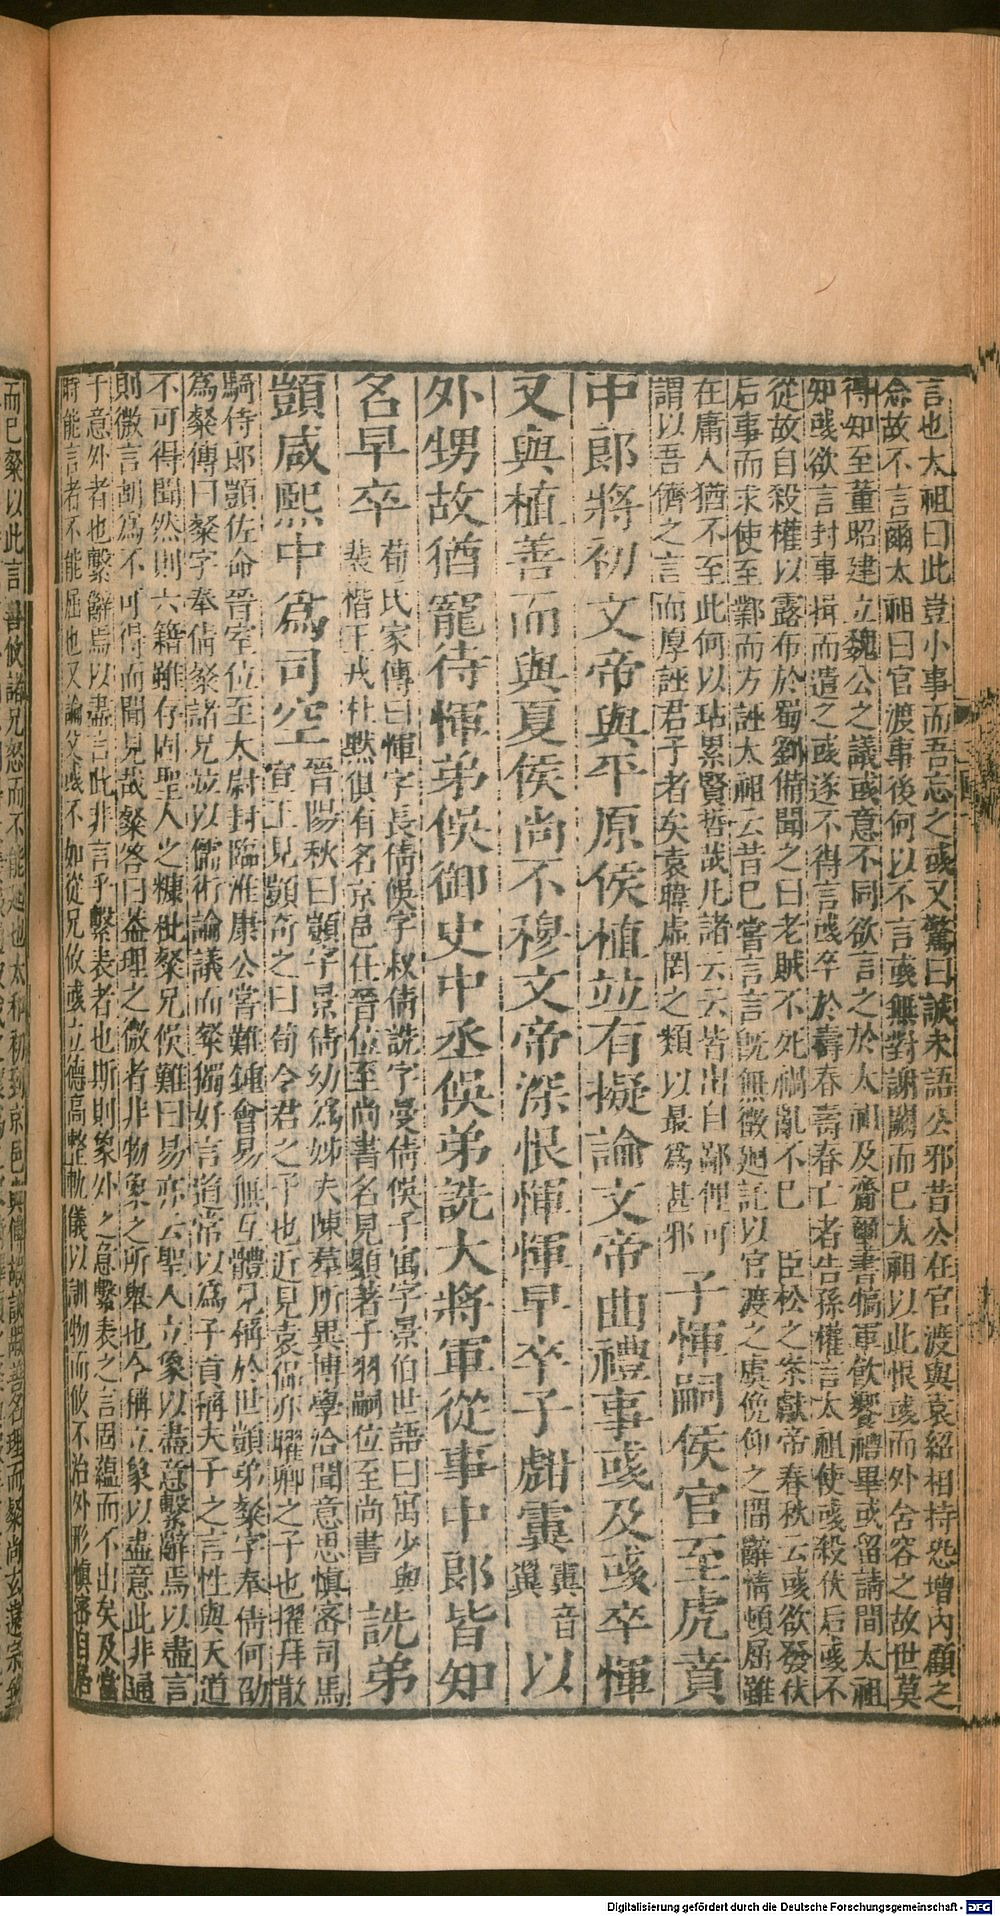 言也太祖曰此豈小事而吾忘之彧又驚曰誠未語公邪昔公在官渡與袁紹相持恐增內顧之
念故不言爾太祖曰官渡事後何以不言彧無對謝闕而已太祖以此恨彧而外含容之故世莫
得知至董昭建立魏公之議彧意不同欲言之於太祖及齎璽書犒軍飲饗禮畢彧留請間太祖
知彧欲言封事揖而遣之彧遂不得言彧卒於壽春壽春亡者告孫權言太祖使彧殺伏后彧不
從故自殺權以露布於蜀劉備聞之曰老賊不死禍亂不已 臣松之案獻帝春秋云彧欲發伏
后事而求使至鄴而方誣太祖云昔已嘗言言旣無徵廻託以官渡之虞俛仰之間辭情頓屈雖
在庸人猶不至此何以玷累賢哲哉凡諸云云皆出自鄙俚可
謂以吾儕之言而厚誣君子者矣袁暐虛罔之類以最爲甚邪 子惲嗣侯官至虎賁
中郎將初文帝與平原侯植並有擬論文帝曲禮事彧及彧卒惲
又與植善而與夏侯尚不穆文帝深恨惲惲早卒子甝霬霬音翼以
外甥故猶寵待惲弟俁御史中丞俁弟詵大將軍從事中郎皆知
名早卒 荀氏家傳曰惲字長倩俁字叔倩詵字曼倩俁子㝢字景伯世語曰㝢少與
裴楷王戎杜默俱有名京邑仕晉位至尚書名見顯著子羽嗣位至尚書 詵弟
顗咸熙中爲司空 晉陽秋曰顗字景倩幼爲姊夫陳羣所異博學洽聞意思愼密司馬
宣王見顗奇之曰荀令君之子也近見袁侃亦曜卿之子也擢拜散
騎侍郎顗佐命晉室位至太尉封臨淮康公嘗難鍾會易無互體見稱於世顗弟粲字奉倩何劭
爲粲傳曰粲字奉倩粲諸兄並以儒術論議而粲獨好言道常以爲子貢稱夫子之言性與天道
不可得聞然則六籍雖存固聖人之糠粃粲兄俁難曰易亦云聖人立象以盡意繫辭焉以盡言
則微言胡爲不可得而聞見哉粲答曰蓋理之微者非物象之所舉也今稱立象以盡意此非通
于意外者也繫辭焉以盡言此非言乎繫表者也斯則象外之意繫表之言固蘊而不出矣及當
時能言者不能屈也又論父彧不如從兄攸彧立德高整軌儀以訓物而攸不治外形愼密自居
而已粲以此言善攸諸兄怒而不能迴也太和初到京邑與傅嘏談嘏善名理而粲尚玄遠宗致
Digitalisierung gefördert durch die Deutsche Forschungsgemeinschaft - DFG